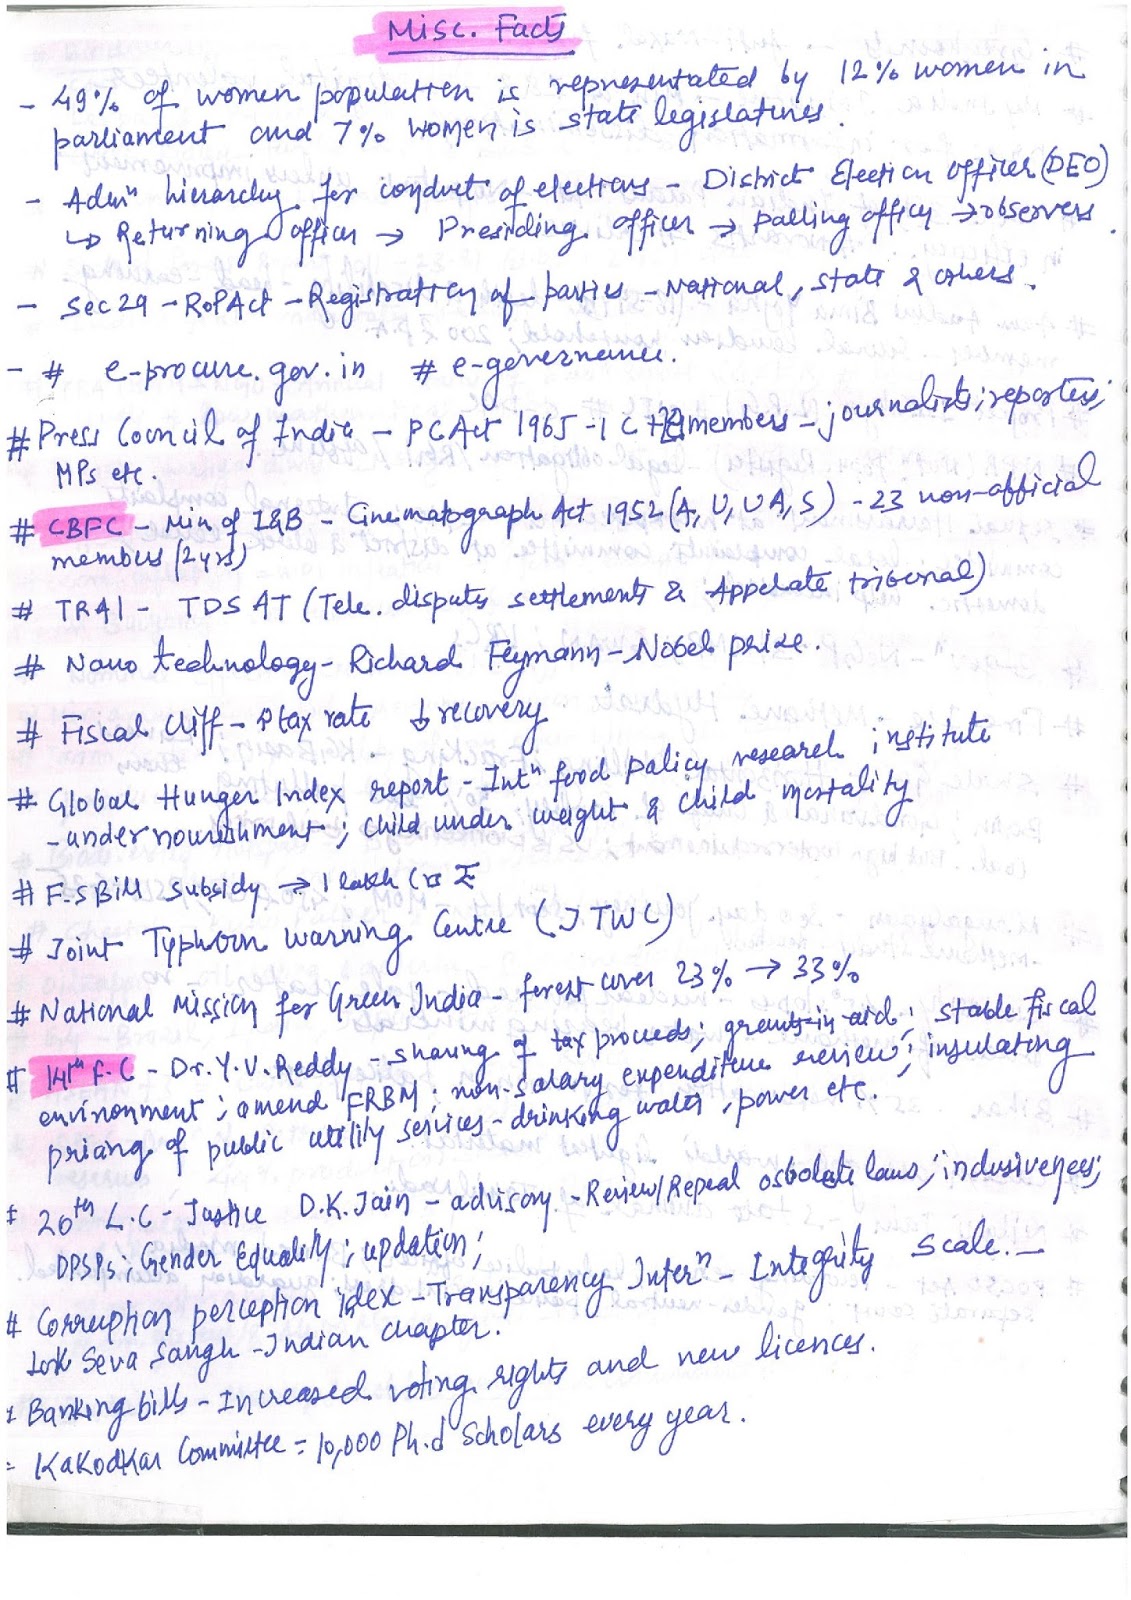 Misc. Facts
- 49% of women population is representated by 12% women in
parliament and 7% women is state legislatures.
- Admn hierarchy for conduct of elections - District Election officer (DEO)
↳ Returning officer → Presiding officer → Polling officer → observers.
- Sec 29 - RoPAct - Registration of parties - National, state & others.
- # e-procure.gov.in # e-governance.
# Press Council of India - PCAct 1965 - 1 C + members - journalists; reporters;
MPs etc.
# CBFC - Min of I&B - Cinematograph Act 1952 (A, U, UA, S) - 23 non-official
members (2yrs)
# TRAI - TDSAT (Tele. disputes settlements & Appelate tribunal)
# Nano technology - Richard Feymann - Nobel prize.
# Fiscal Cliff - tax rate ↓ recovery
# Global Hunger Index report - Intn food policy research institute
- undernourishment; child under weight & child mortality
# F.S Bill subsidy → 1 lakh Crs
# Joint Typhoon warning Centre (JTWC)
# National Mission for Green India - forest cover 23% → 33%
# 14th F.C - Dr. Y.V. Reddy - sharing of tax proceeds; grants-in-aid; stable fiscal
environment; amend FRBM; non-salary expenditure review; insulating
pricing of public utility services - drinking water, power etc.
# 20th L.C - Justice D.K. Jain - advisory - Review/Repeal osbolete laws; inclusiveness;
DPSPs; Gender Equality; updation;
# Corruption perception index - Transparency Intern - Integrity scale. -
Lok Seva Sangh - Indian chapter.
# Banking bills - Increased voting rights and new licences.
- Kakodkar Committee = 10,000 Ph.d Scholars every year.